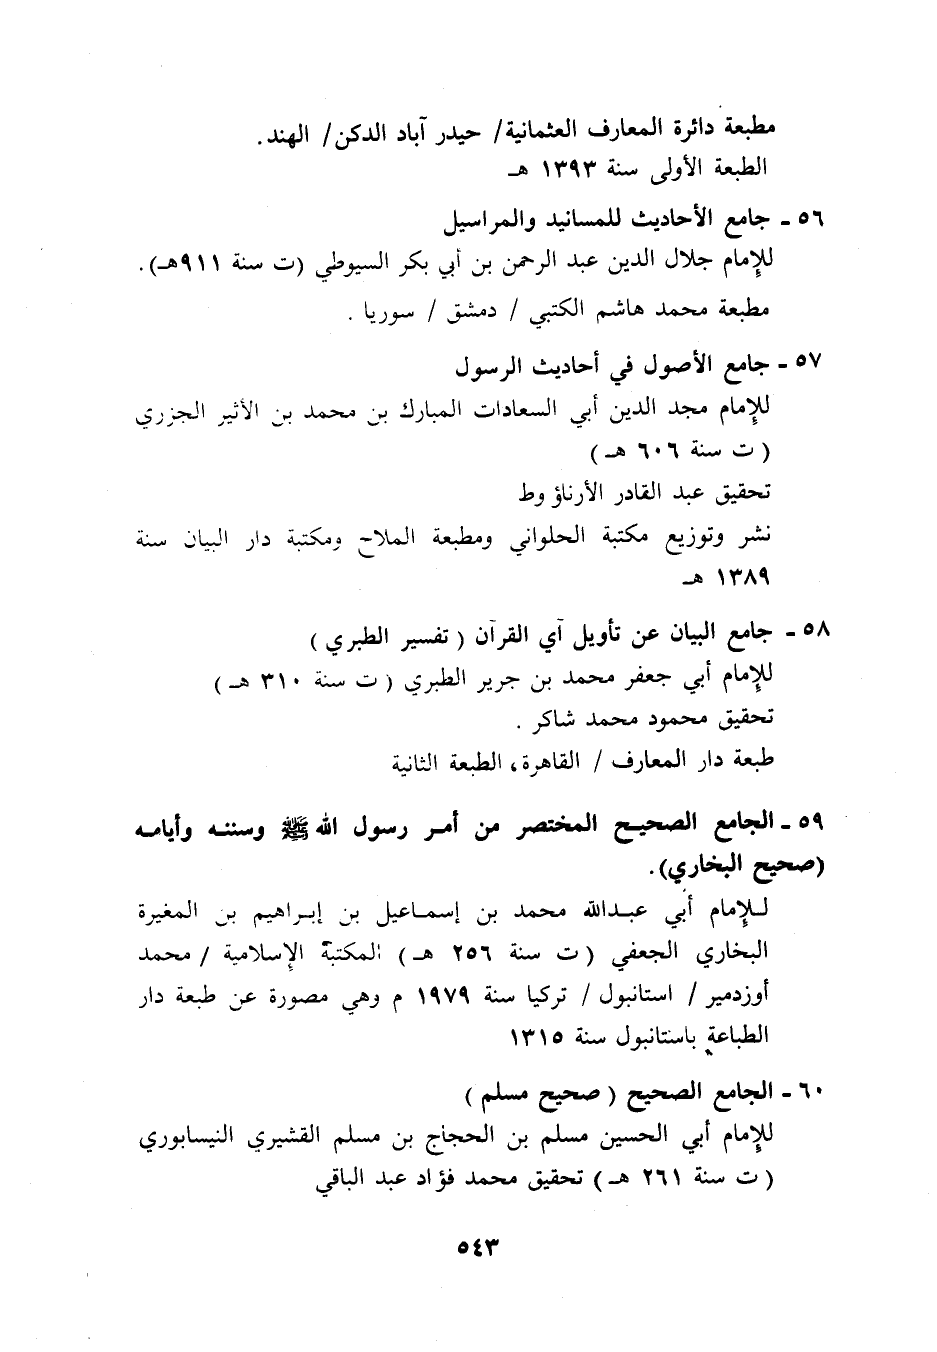 مطبعة دائرة المعارف العثمانية/ حيدر آباد الدكن/ الهند.
الطبعة الأولى سنة ١٣٩٣ هـ
٥٦ - جامع الأحاديث للمسانيد والمراسيل
للإمام جلال الدين عبد الرحمن بن أبي بكر السيوطي (ت سنة ٩١١هـ).
مطبعة محمد هاشم الكتبي / دمشق / سوريا .
٥٧ - جامع الأصول في أحاديث الرسول
للإمام مجد الدين أبي السعادات المبارك بن محمد بن الأثير الجزري
( ت سنة ٦٠٦ هـ )
تحقيق عبد القادر الأرناؤوط
نشر وتوزيع مكتبة الحلواني ومطبعة الملاح ومكتبة دار البيان سنة
١٣٨٩ هـ
٥٨ - جامع البيان عن تأويل آي القرآن ( تفسير الطبري )
للإمام أبي جعفر محمد بن جرير الطبري ( ت سنة ٣١٠ هـ )
تحقيق محمود محمد شاكر .
طبعة دار المعارف / القاهرة، الطبعة الثانية
٥٩ - الجامع الصحيح المختصر من أمر رسول الله ﷺ وسننه وأيامه
(صحيح البخاري).
للإمام أبي عبدالله محمد بن إسماعيل بن إبراهيم بن المغيرة
البخاري الجعفي ( ت سنة ٢٥٦ هـ ) المكتبة الإسلامية / محمد
أوزدمير / استانبول / تركيا سنة ١٩٧٩ م وهي مصورة عن طبعة دار
الطباعة باستانبول سنة ١٣١٥
٦٠ - الجامع الصحيح ( صحيح مسلم )
للإمام أبي الحسين مسلم بن الحجاج بن مسلم القشيري النيسابوري
( ت سنة ٢٦١ هـ ) تحقيق محمد فؤاد عبد الباقي
٥٤٣